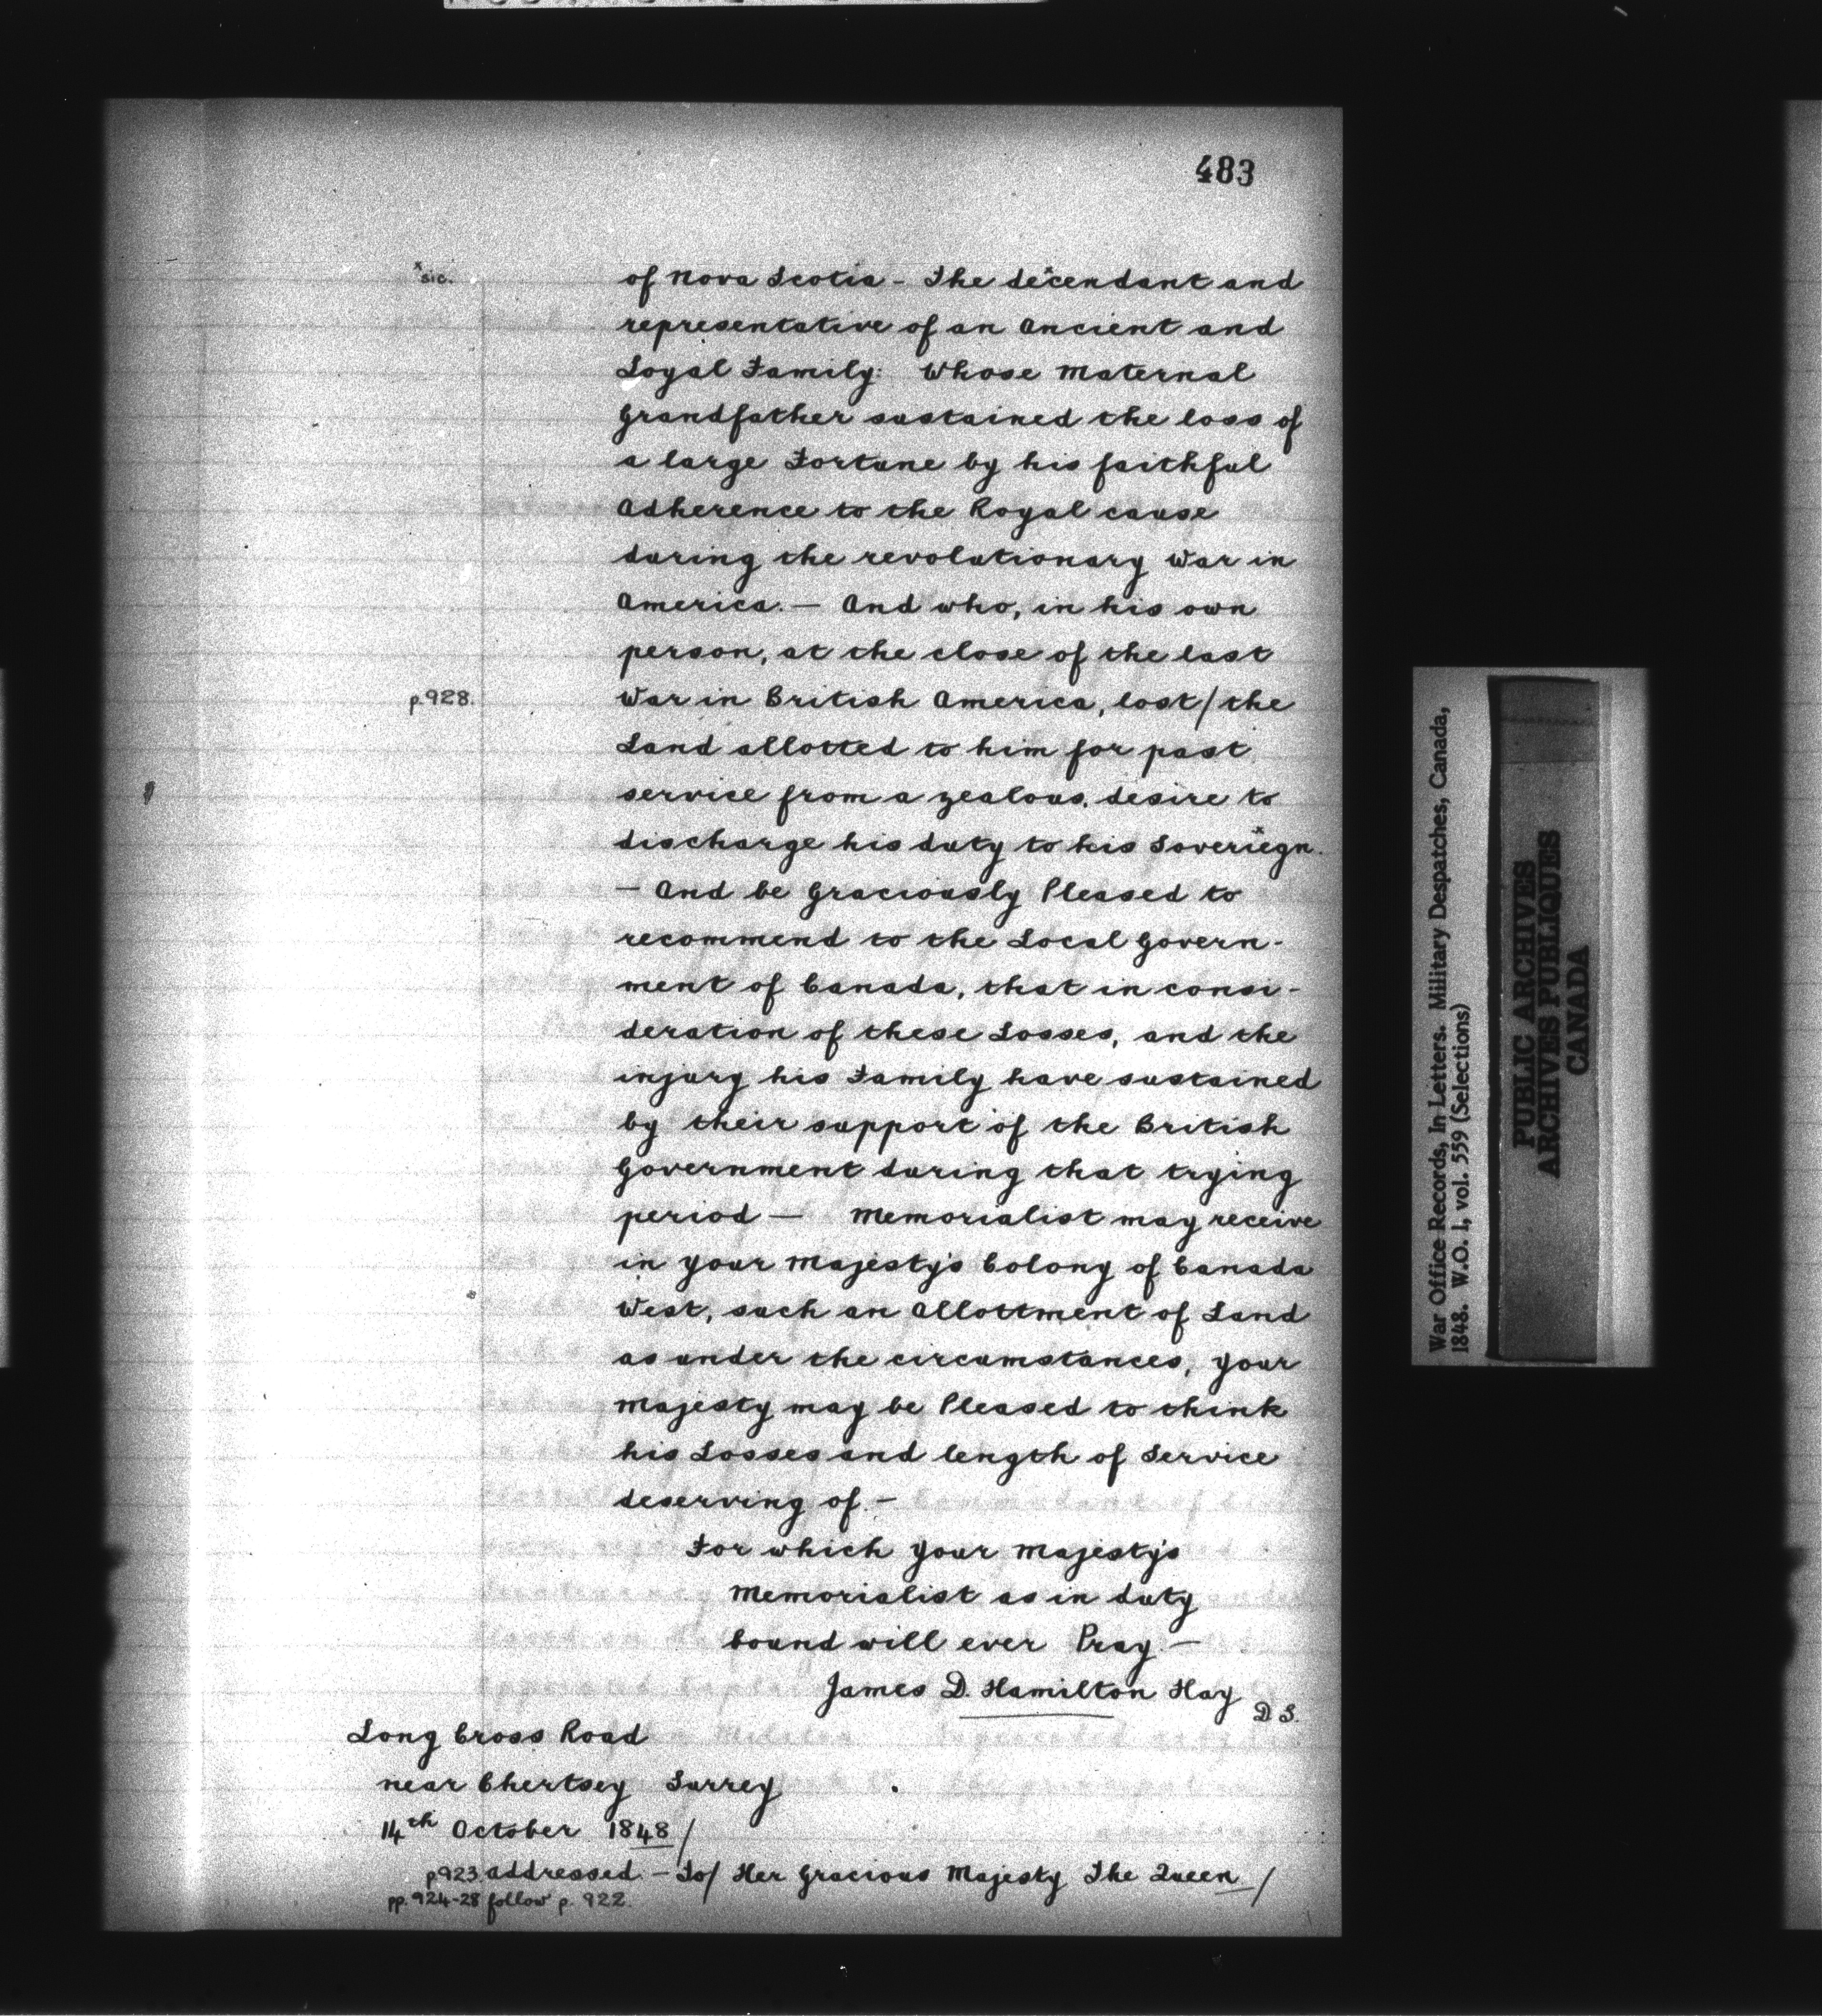 483
*sic.
of Nova Scotia - The de*cendant and
representative of an Ancient and
Loyal Family: Whose Maternal
Grandfather sustained the loss of
a large Fortune by his faithful
Adherence to the Royal cause
during the revolutionary War in
America. — And who, in his own
person, at the close of the last
p. 928.
War in British America, lost / the
Land allotted to him for past
service from a zealous desire to
discharge his duty to his Soveri*egn.
— And be Graciously Pleased to
recommend to the Local Govern-
ment of Canada, that in consi-
deration of these Losses, and the
injury his Family have sustained
by their support of the British
Government during that trying
period — Memorialist may receive
in Your Majesty's Colony of Canada
West, such an Allottment of Land
as under the circumstances, Your
Majesty may be Pleased to think
his Losses and length of Service
deserving of. —
For which Your Majesty's
Memorialist as in duty
bound will ever Pray —
James D. Hamilton Hay
D S.
Long Cross Road
near Chertsey Surrey
14th October 1848 /
p 923 addressed — To / Her Gracious Majesty The Queen /
pp. 924-28 follow p. 922.
War Office Records, In Letters. Military Despatches, Canada,
1848. W.O. 1, vol. 559 (Selections)
PUBLIC ARCHIVES
ARCHIVES PUBLIQUES
CANADA